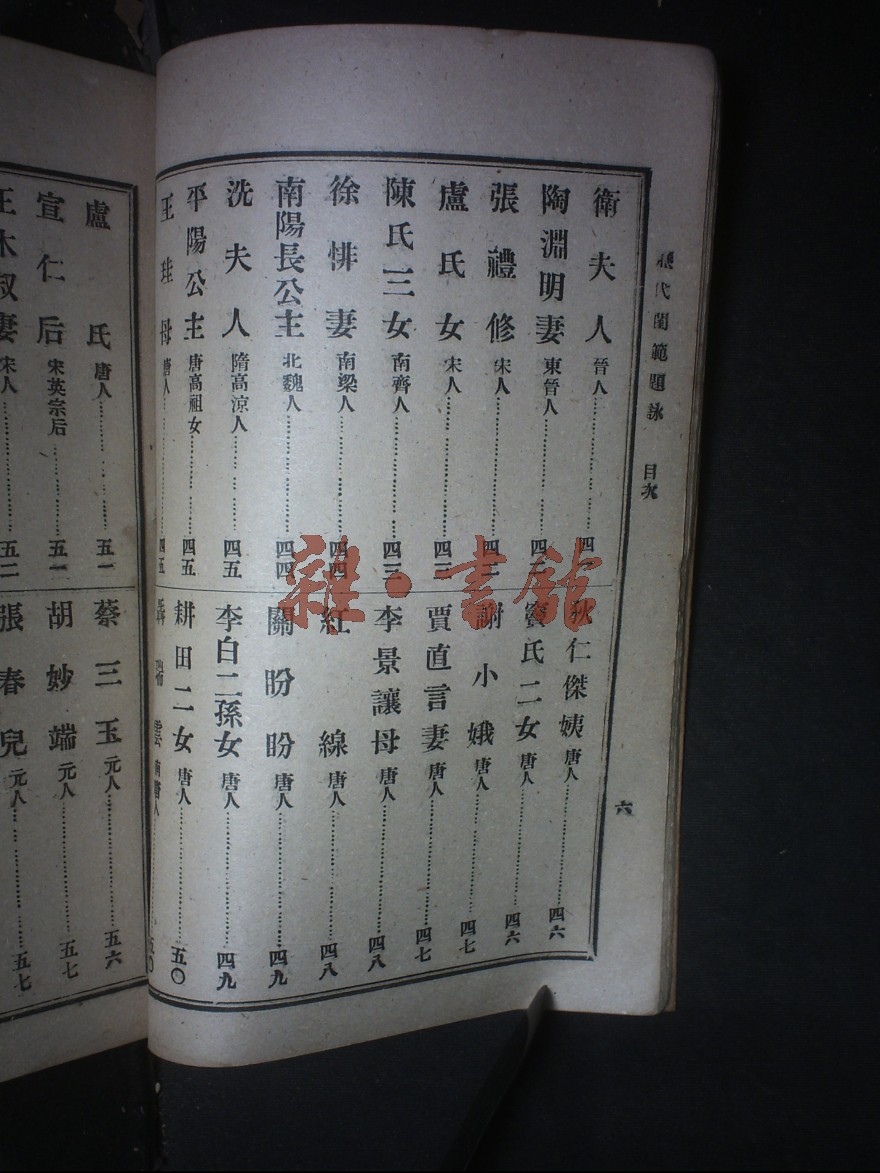 歷代閨範題詠 目次 六
衛夫人 晉人 四一
陶淵明妻 東晉人 四二
張禮修 宋人 四三
盧氏女 宋人 四三
陳氏三女 南齊人 四三
徐悱妻 南梁人 四四
南陽長公主 北魏人 四四
洗夫人 隋高涼人 四五
平陽公主 唐高祖女 四五
王珪母 唐人 四五
狄仁傑姨 唐人 四六
竇氏二女 唐人 四六
謝小娥 唐人 四七
賈直言妻 唐人 四七
李景讓母 唐人 四八
紅線 唐人 四八
關盼盼 唐人 四九
李白二孫女 唐人 四九
耕田二女 唐人 五〇
雲 南唐人 五〇
盧氏 唐人 五一
宣仁后 宋英宗后 五一
王木叔妻 宋人 五二
蔡三玉 元人 五六
胡妙端 元人 五七
張春兒 元人 五七
雜·書館